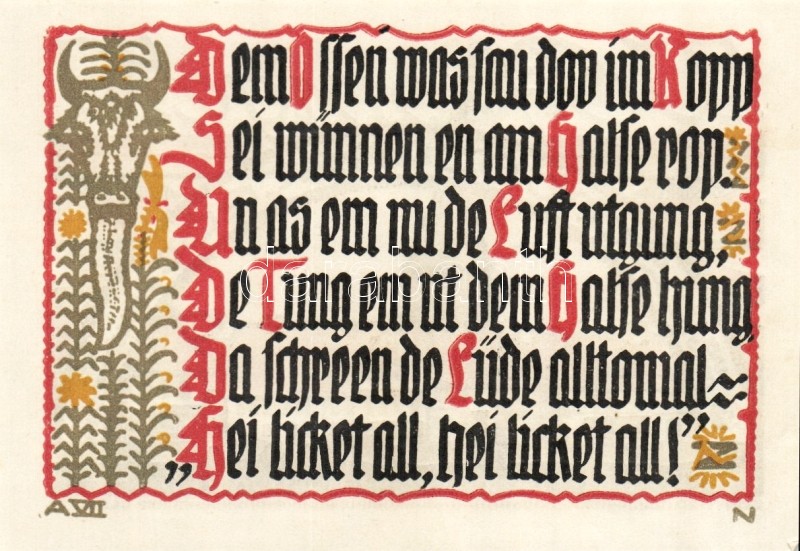 Dem Ossen was sau dov im Kopp
Sei wünnen en am Halse rop.
Un as em nu de Luft utgung,
De Tung em ut dem Halse hung
Da schreen de Lüde alltomal
„Hei licket all, hei licket all!”
A VII
Z
darabanth